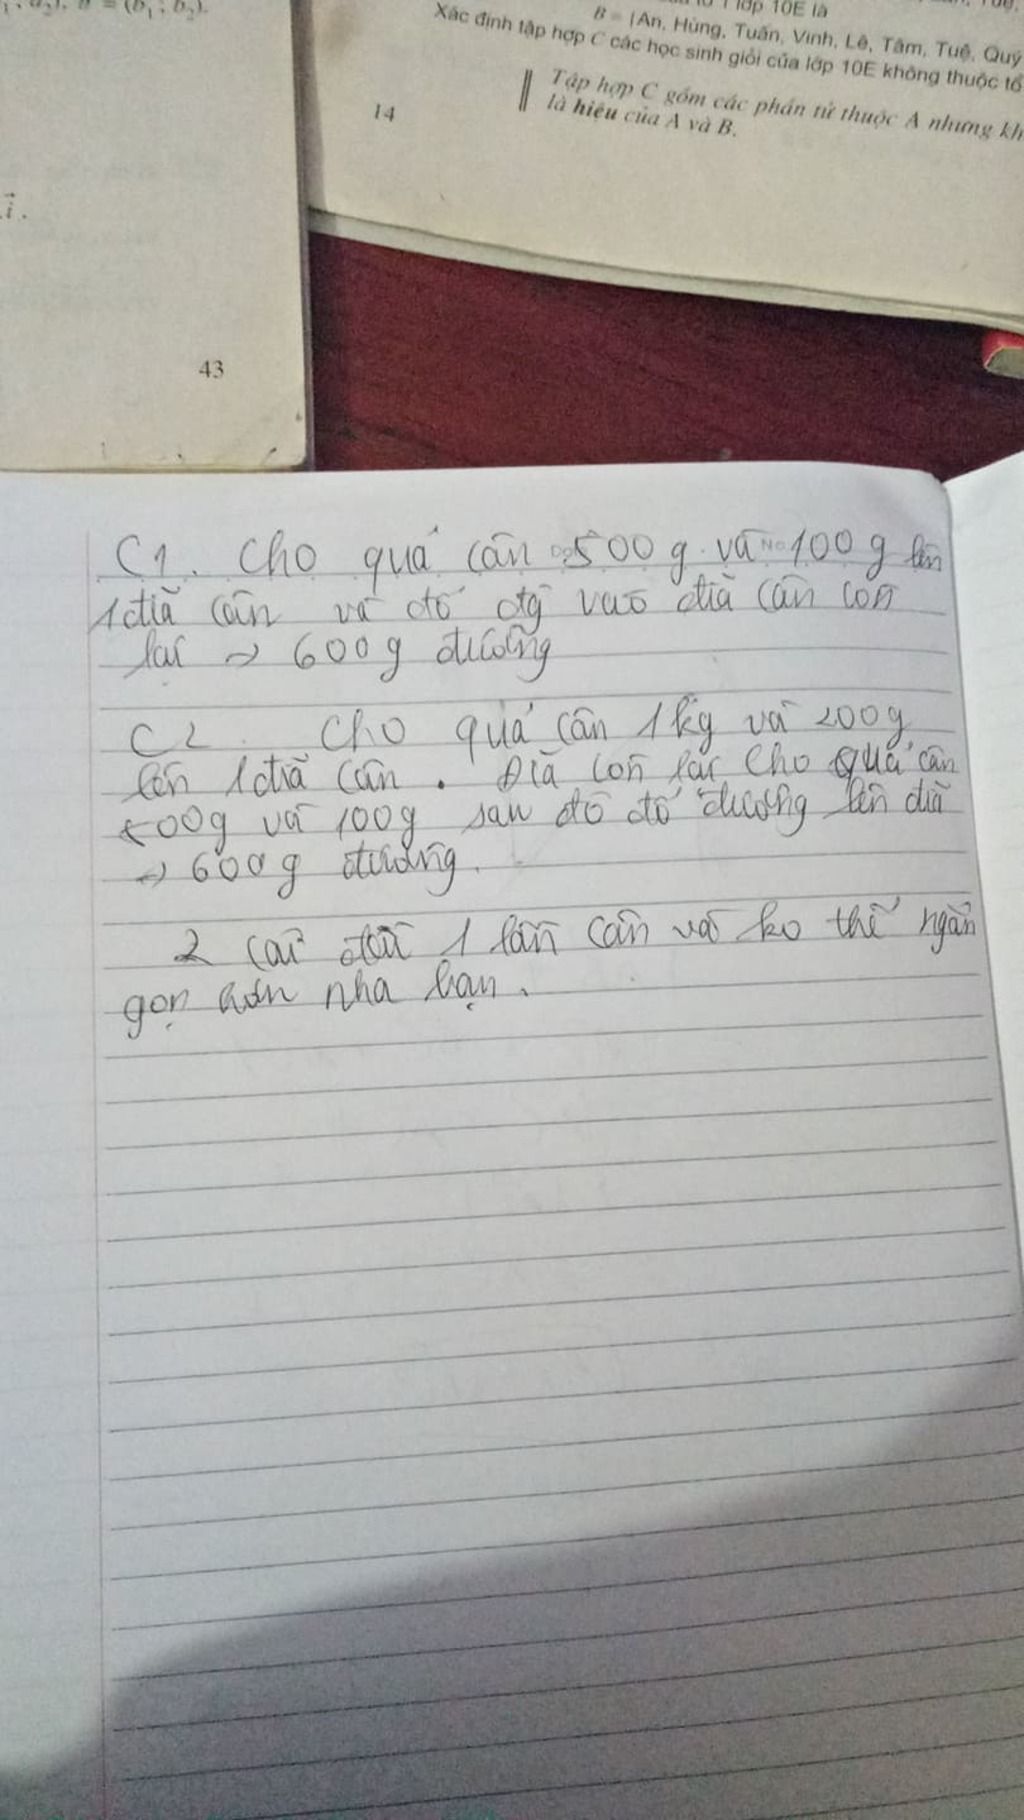 = (b₁; b₂).
i⃗.
43
lớp 10E là
B = {An, Hùng, Tuấn, Vinh, Lê, Tâm, Tuệ, Quý
Xác định tập hợp C các học sinh giỏi của lớp 10E không thuộc tổ
Tập hợp C gồm các phần tử thuộc A nhưng kh
là hiệu của A và B.
14
C1. Cho quả cân 500g và 100g lên
1 đĩa cân và đổ đg vào đĩa cân còn
lại → 600g đường
C2. Cho quả cân 1kg và 200g
lên 1 đĩa cân. Đĩa còn lại cho quả cân
500g và 100g sau đó đổ đường lên đĩa
→ 600g đường.
2 cái đều 1 lần cân và ko thể ngắn
gọn hơn nha bạn.